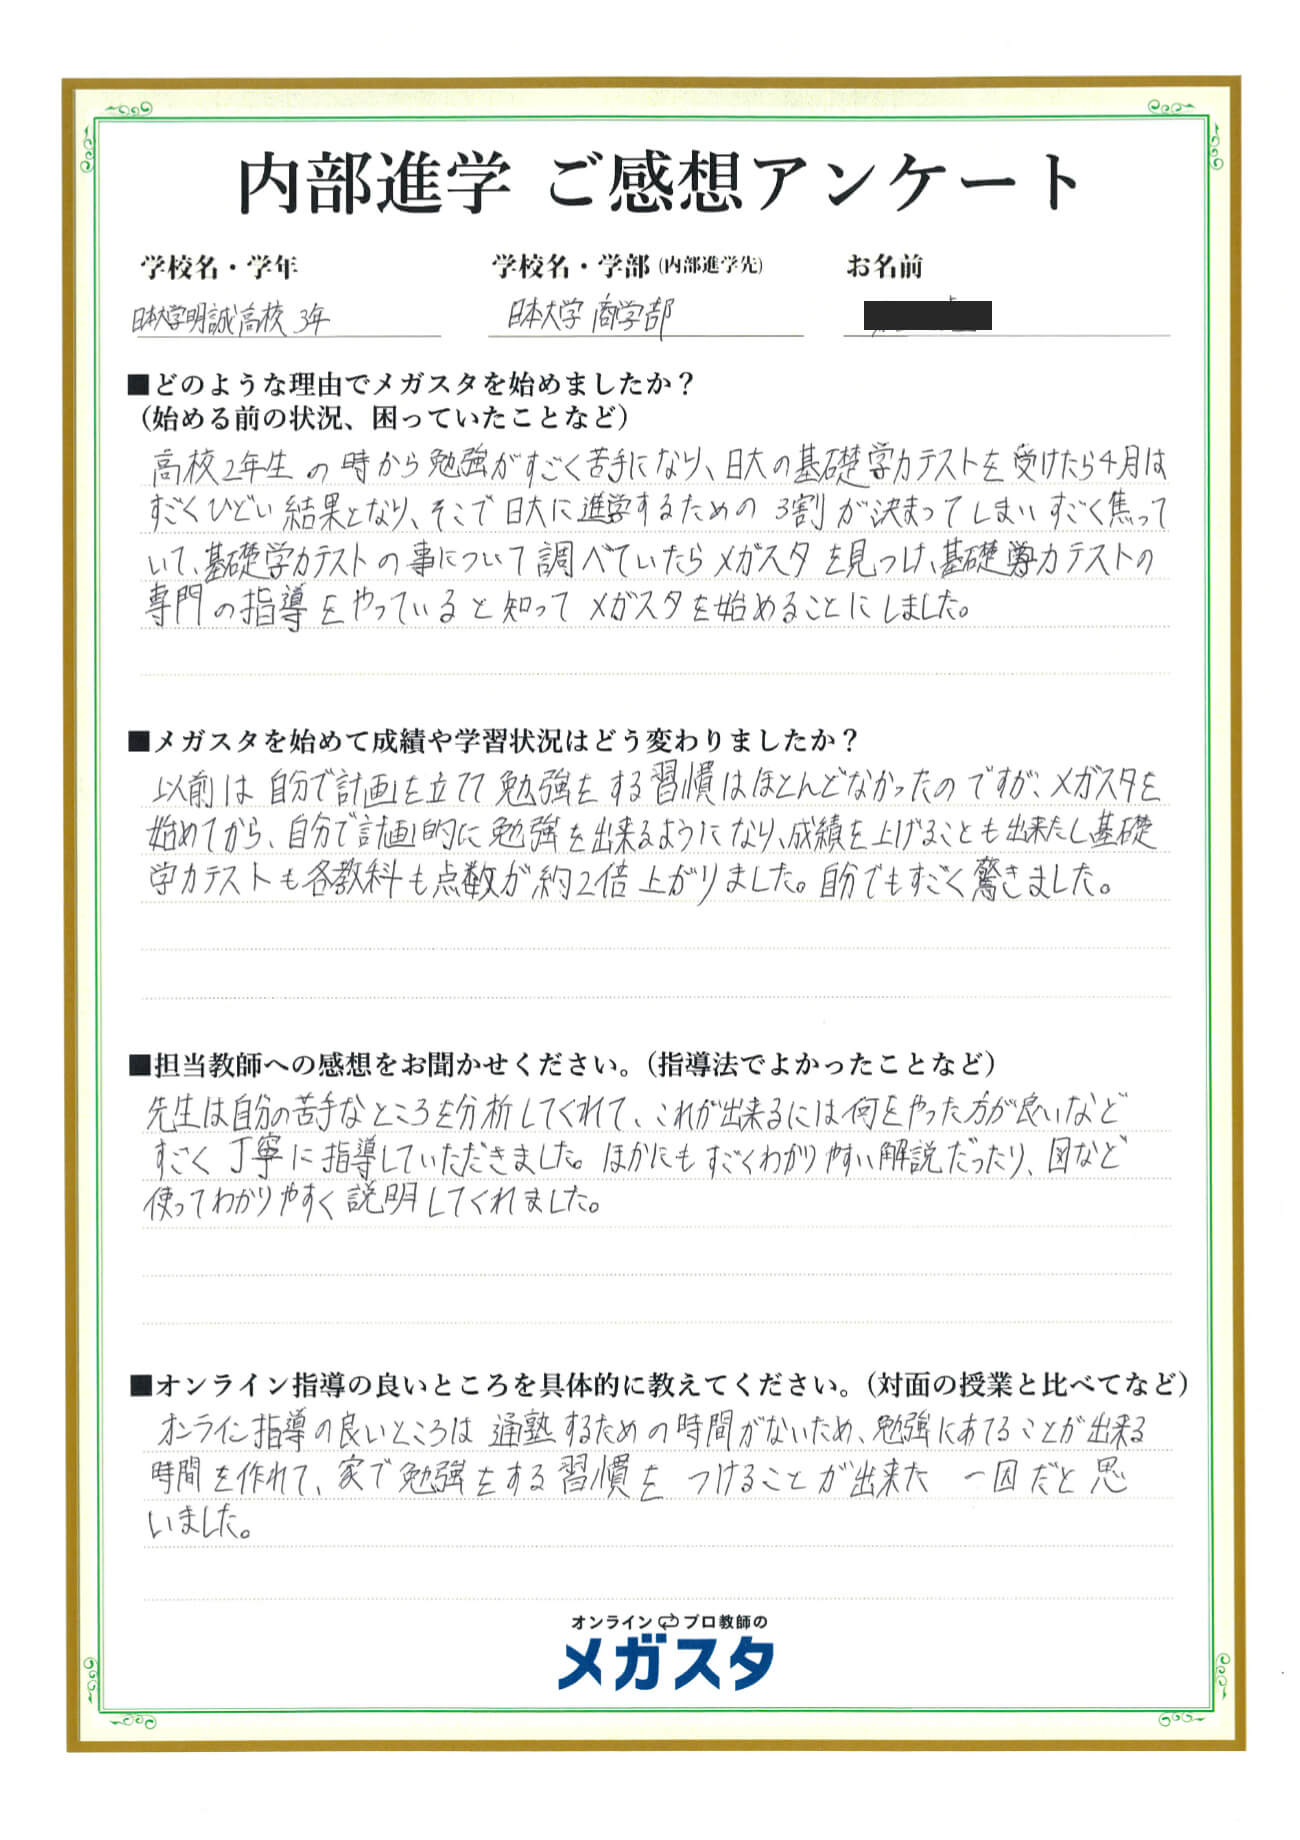 内部進学 ご感想アンケート
学校名・学年 学校名・学部(内部進学先) お名前
日本大学明誠高校 3年 日本大学 商学部
■どのような理由でメガスタを始めましたか？
（始める前の状況、困っていたことなど）
高校2年生の時から勉強がすごく苦手になり、日大の基礎学力テストを受けたら4月は
すごくひどい結果となり、そこで日大に進学するための3割が決まってしまいすごく焦って
いて、基礎学力テストの事について調べていたらメガスタを見つけ、基礎学力テストの
専門の指導をやっていると知ってメガスタを始めることにしました。
■メガスタを始めて成績や学習状況はどう変わりましたか？
以前は自分で計画を立てて勉強をする習慣はほとんどなかったのですが、メガスタを
始めてから、自分で計画的に勉強を出来るようになり、成績を上げることも出来たし基礎
学力テストも各教科も点数が約2倍上がりました。自分でもすごく驚きました。
■担当教師への感想をお聞かせください。（指導法でよかったことなど）
先生は自分の苦手なところを分析してくれて、これが出来るには何をやった方が良いなど
すごく丁寧に指導していただきました。ほかにもすごくわかりやすい解説だったり、図など
使ってわかりやすく説明してくれました。
■オンライン指導の良いところを具体的に教えてください。（対面の授業と比べてなど）
オンライン指導の良いところは通塾するための時間がないため、勉強にあてることが出来る
時間を作れて、家で勉強をする習慣をつけることが出来た一因だと思
いました。
オンライン プロ教師の
メガスタ